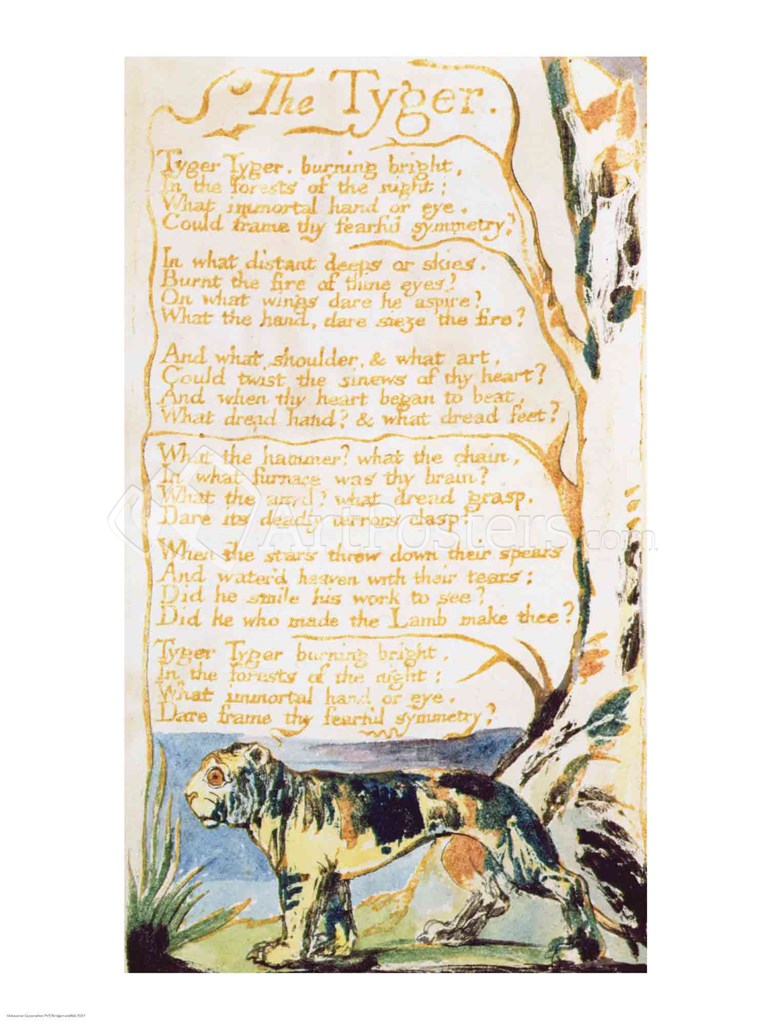 The Tyger.
Tyger Tyger. burning bright,
In the forests of the night;
What immortal hand or eye.
Could frame thy fearful symmetry?
In what distant deeps or skies.
Burnt the fire of thine eyes?
On what wings dare he aspire?
What the hand, dare sieze the fire?
And what shoulder, & what art,
Could twist the sinews of thy heart?
And when thy heart began to beat,
What dread hand? & what dread feet?
What the hammer? what the chain,
In what furnace was thy brain?
What the anvil? what dread grasp.
Dare its deadly terrors clasp!
When the stars threw down their spears
And water'd heaven with their tears:
Did he smile his work to see?
Did he who made the Lamb make thee?
Tyger Tyger burning bright,
In the forests of the night:
What immortal hand or eye.
Dare frame thy fearful symmetry?
ArtPosters.com